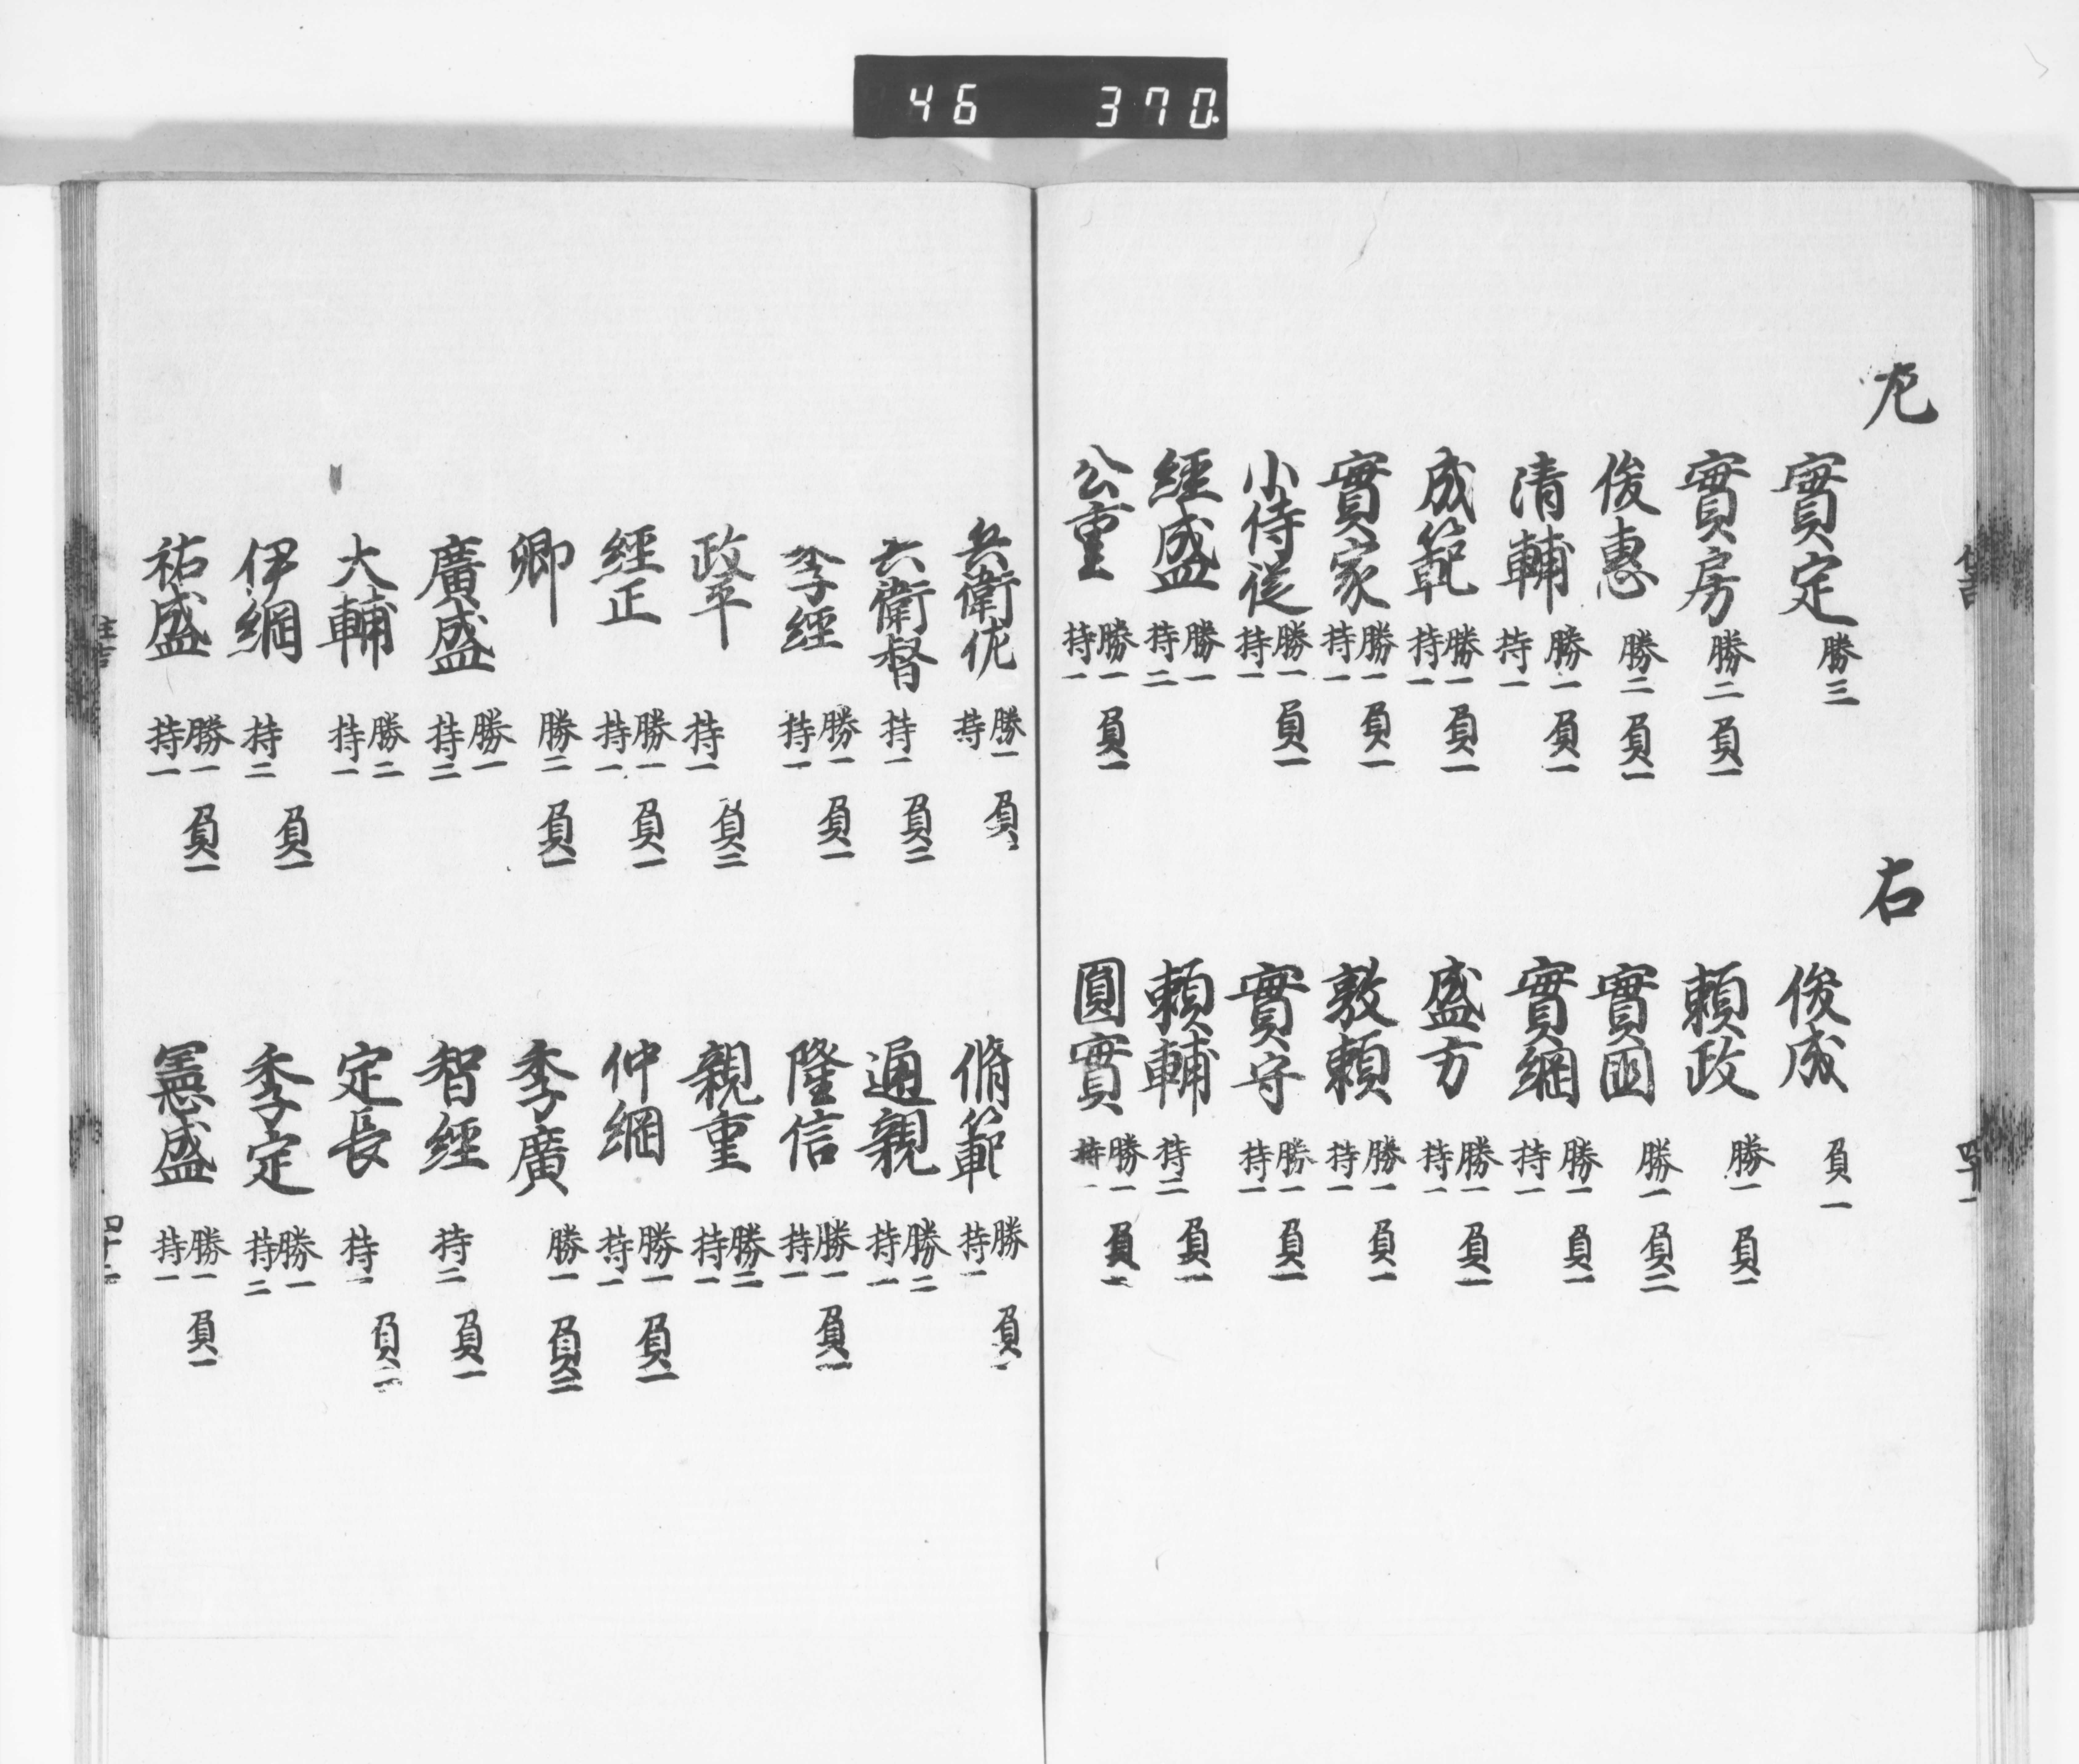 46 370
左
實定 勝三
實房 勝二 負一
俊惠 勝二 負一
清輔 勝一 持一 負一
成範 勝一 持一 負一
實家 勝一 持一 負一
小侍従 勝一 持一 負一
經盛 勝一 持二
公重 勝一 持一 負一
右
俊成 負一
頼政 勝一 負一
實國 勝一 負二
實綱 勝一 持一 負一
盛方 勝一 持一 負一
敦頼 勝一 持一 負一
實守 勝一 持一 負一
頼輔 持二 負一
圓實 勝一 持一 負一
兵衛佐 勝一 持 負
兵衛督 持一 負二
季經 勝一 持一 負一
政平 持一 負二
經正 勝一 持一 負一
卿 勝二 負一
廣盛 勝一 持二
大輔 勝二 持一
伊綱 持二 負一
祐盛 勝一 持一 負一
脩範 勝 持一 負
通親 勝二 持一
隆信 勝一 持一 負一
親重 勝二 持一
仲綱 勝一 持一 負一
季廣 勝一 負二
智經 持二 負一
定長 持一 負二
季定 勝一 持二
憲盛 勝一 持一 負一
住吉
四十二